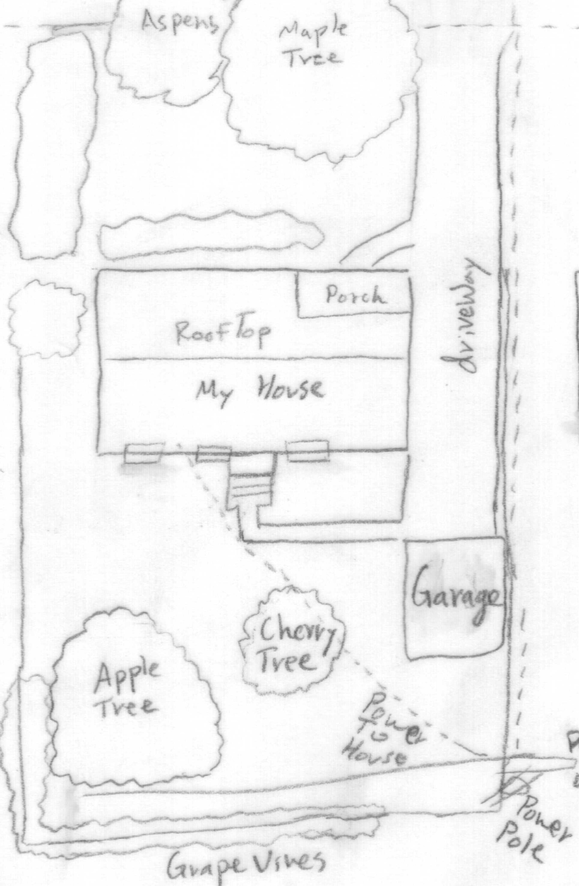 Aspens
Maple
Tree
Porch
RoofTop
My House
driveway
Garage
Cherry
Tree
Apple
Tree
Power
To
House
Power
Pole
Grape Vines